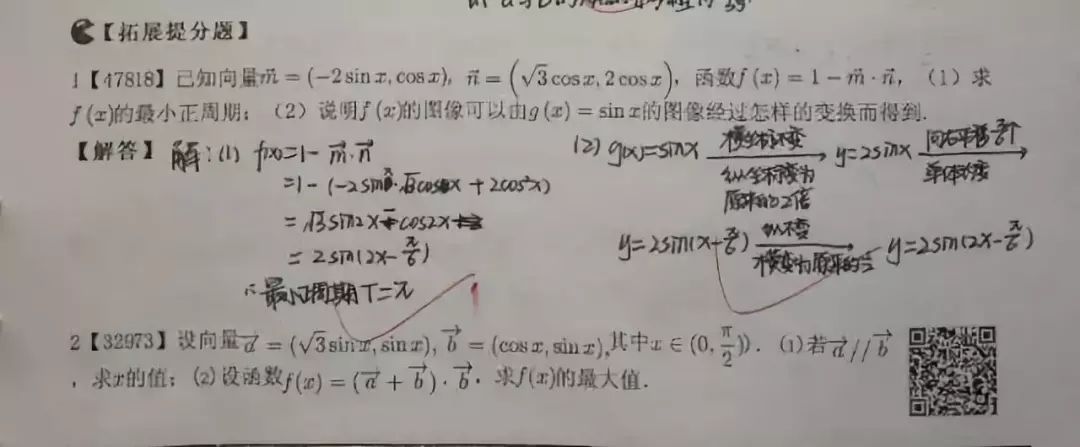 【拓展提分题】
1【47818】已知向量m⃗ = (−2 sin x, cos x), n⃗ = (√3 cos x, 2 cos x), 函数f (x) = 1 − m⃗ · n⃗, (1) 求
f (x)的最小正周期; (2) 说明f (x)的图像可以由g (x) = sin x的图像经过怎样的变换而得到.
【解答】解:(1) f(x)=1−m⃗·n⃗
=1−(−2sinx·√3cosx+2cos²x)
=√3sin2x−cos2x
=2sin(2x−π/6)
∴最小正周期T=π
(2) g(x)=sinx 横坐标不变 纵坐标变为原来的2倍 → y=2sinx 向右平移π/6个单位长度 →
y=2sin(x−π/6) 纵不变 横变为原来的½ → y=2sin(2x−π/6)
2【32973】设向量a⃗ = (√3sin x, sin x), b⃗ = (cos x, sin x),其中x ∈ (0, π/2)). (1)若a⃗//b⃗
, 求x的值; (2)设函数f(x) = (a⃗ + b⃗) · b⃗. 求f(x)的最大值.